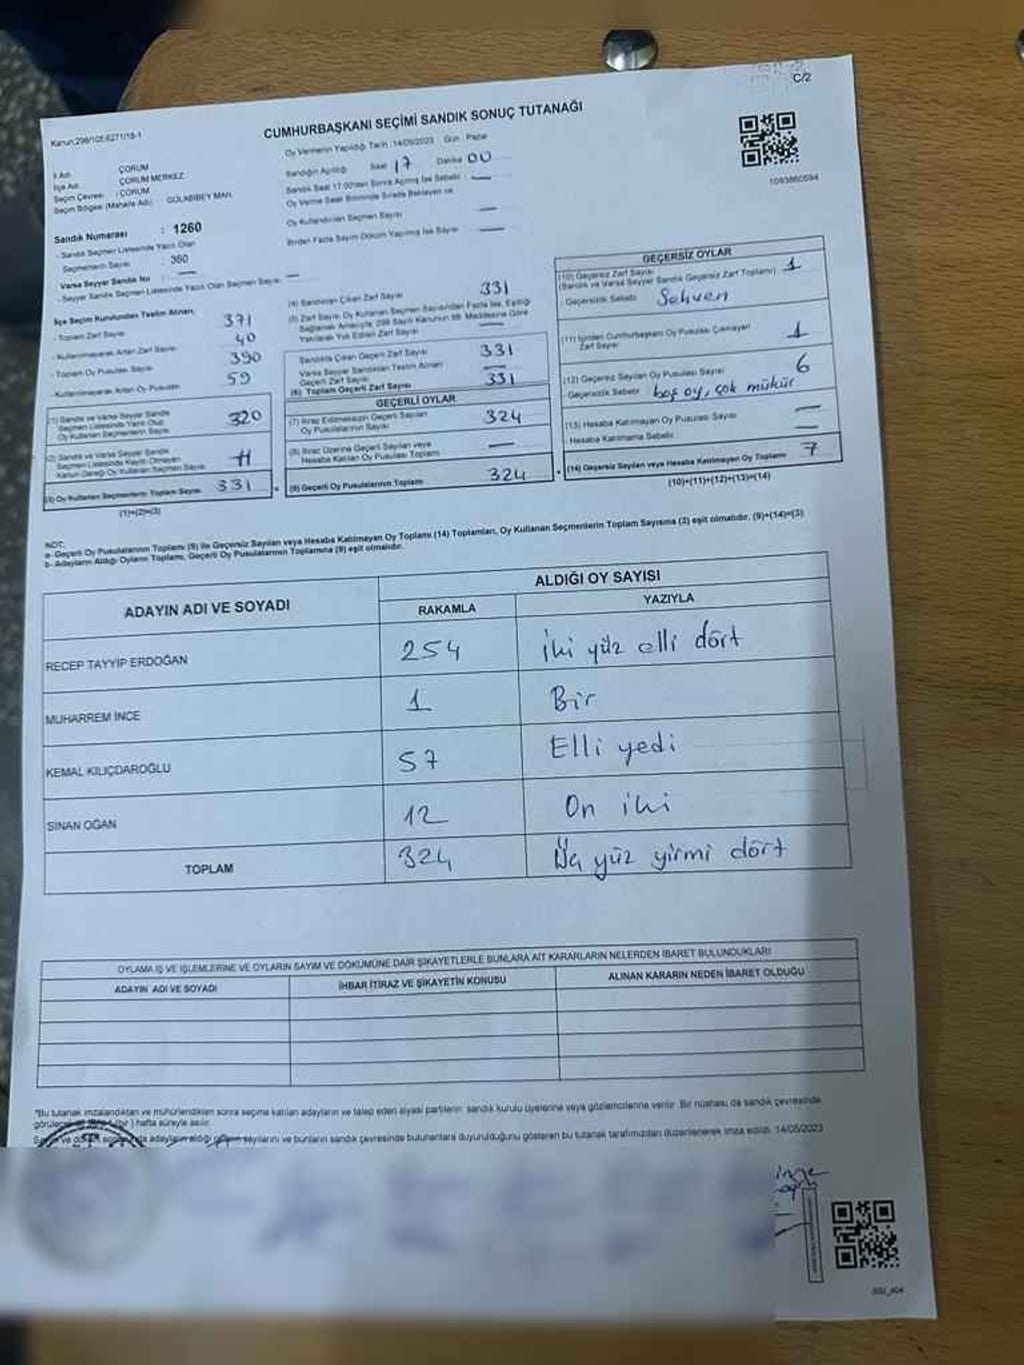 C/2
Kanun:298/105.6271/18-1
CUMHURBAŞKANI SEÇİMİ SANDIK SONUÇ TUTANAĞI
Oy Vermenin Yapıldığı Tarih :14/05/2023 Gün : Pazar
İl Adı : ÇORUM
İlçe Adı : ÇORUM MERKEZ
Seçim Çevresi : ÇORUM
Seçim Bölgesi (Mahalle Adı) : GÜLABİBEY MAH.
Sandığın Açıldığı Saat 17 Dakika 00
Sandık Saat 17:00'den Sonra Açılmış İse Sebebi : —
Oy Verme Saati Bitiminde Sırada Bekleyen ve
Oy Kullandırılan Seçmen Sayısı —
Birden Fazla Sayım Döküm Yapılmış İse Sayısı —
1093860594
Sandık Numarası : 1260
- Sandık Seçmen Listesinde Yazılı Olan
Seçmenlerin Sayısı : 360
Varsa Seyyar Sandık No : —
- Seyyar Sandık Seçmen Listesinde Yazılı Olan Seçmen Sayısı : —
İlçe Seçim Kurulundan Teslim Alınan;
- Toplam Zarf Sayısı 371
- Kullanılmayarak Artan Zarf Sayısı 40
- Toplam Oy Pusulası Sayısı 390
- Kullanılmayarak Artan Oy Pusulası 59
(1) Sandık ve Varsa Seyyar Sandık
Seçmen Listesinde Yazılı Olup
Oy Kullanan Seçmenlerin Sayısı 320
(2) Sandık ve Varsa Seyyar Sandık
Seçmen Listesinde Kayıtlı Olmayan
Kanun Gereği Oy Kullanan Seçmen Sayısı 11
(3) Oy Kullanan Seçmenlerin Toplam Sayısı 331
(1)+(2)=(3)
(4) Sandıktan Çıkan Zarf Sayısı 331
(5) Zarf Sayısı Oy Kullanan Seçmen Sayısından Fazla İse, Eşitliği
Sağlamak Amacıyla; 298 Sayılı Kanunun 98. Maddesine Göre
Yakılarak Yok Edilen Zarf Sayısı —
Sandıkta Çıkan Geçerli Zarf Sayısı 331
Varsa Seyyar Sandıktan Teslim Alınan
Geçerli Zarf Sayısı —
(6) Toplam Geçerli Zarf Sayısı 331
GEÇERLİ OYLAR
(7) İtiraz Edilmeksizin Geçerli Sayılan
Oy Pusulasının Sayısı 324
(8) İtiraz Üzerine Geçerli Sayılan veya
Hesaba Katılan Oy Pusulası Toplamı —
(9) Geçerli Oy Pusulalarının Toplamı 324
GEÇERSİZ OYLAR
(10) Geçersiz Zarf Sayısı 1
(Sandık ve Varsa Seyyar Sandık Geçersiz Zarf Toplamı)
- Geçersizlik Sebebi Sehven
(11) İçinden Cumhurbaşkanı Oy Pusulası Çıkmayan
Zarf Sayısı 1
(12) Geçersiz Sayılan Oy Pusulası Sayısı 6
- Geçersizlik Sebebi boş oy, çok mühür
(13) Hesaba Katılmayan Oy Pusulası Sayısı —
- Hesaba Katılmama Sebebi —
(14) Geçersiz Sayılan veya Hesaba Katılmayan Oy Toplamı 7
(10)+(11)+(12)+(13)=(14)
NOT;
a- Geçerli Oy Pusulalarının Toplamı (9) ile Geçersiz Sayılan veya Hesaba Katılmayan Oy Toplamı (14) Toplamları, Oy Kullanan Seçmenlerin Toplam Sayısına (3) eşit olmalıdır. (9)+(14)=(3)
b- Adayların Aldığı Oyların Toplamı, Geçerli Oy Pusulalarının Toplamına (9) eşit olmalıdır.
ADAYIN ADI VE SOYADI
ALDIĞI OY SAYISI
RAKAMLA YAZIYLA
RECEP TAYYİP ERDOĞAN 254 iki yüz elli dört
MUHARREM İNCE 1 Bir
KEMAL KILIÇDAROĞLU 57 Elli yedi
SİNAN OĞAN 12 On iki
TOPLAM 324 yüz yirmi dört
OYLAMA İŞ VE İŞLEMLERİNE VE OYLARIN SAYIM VE DÖKÜMÜNE DAİR ŞİKAYETLERLE BUNLARA AİT KARARLARIN NELERDEN İBARET BULUNDUKLARI
ADAYIN ADI VE SOYADI İHBAR İTİRAZ VE ŞİKAYETİN KONUSU ALINAN KARARIN NEDEN İBARET OLDUĞU
*Bu tutanak imzalandıktan ve mühürlendikten sonra seçime katılan adayların ve talep eden siyasi partilerin sandık kurulu üyelerine veya gözlemcilerine verilir. Bir nüshası da sandık çevresinde
hafta süreyle asılır.
adayların aldığı oyların sayılarını ve bunların sandık çevresinde bulunanlara duyurulduğunu gösteren bu tutanak tarafımızdan düzenlenerek imza edildi. 14/05/2023